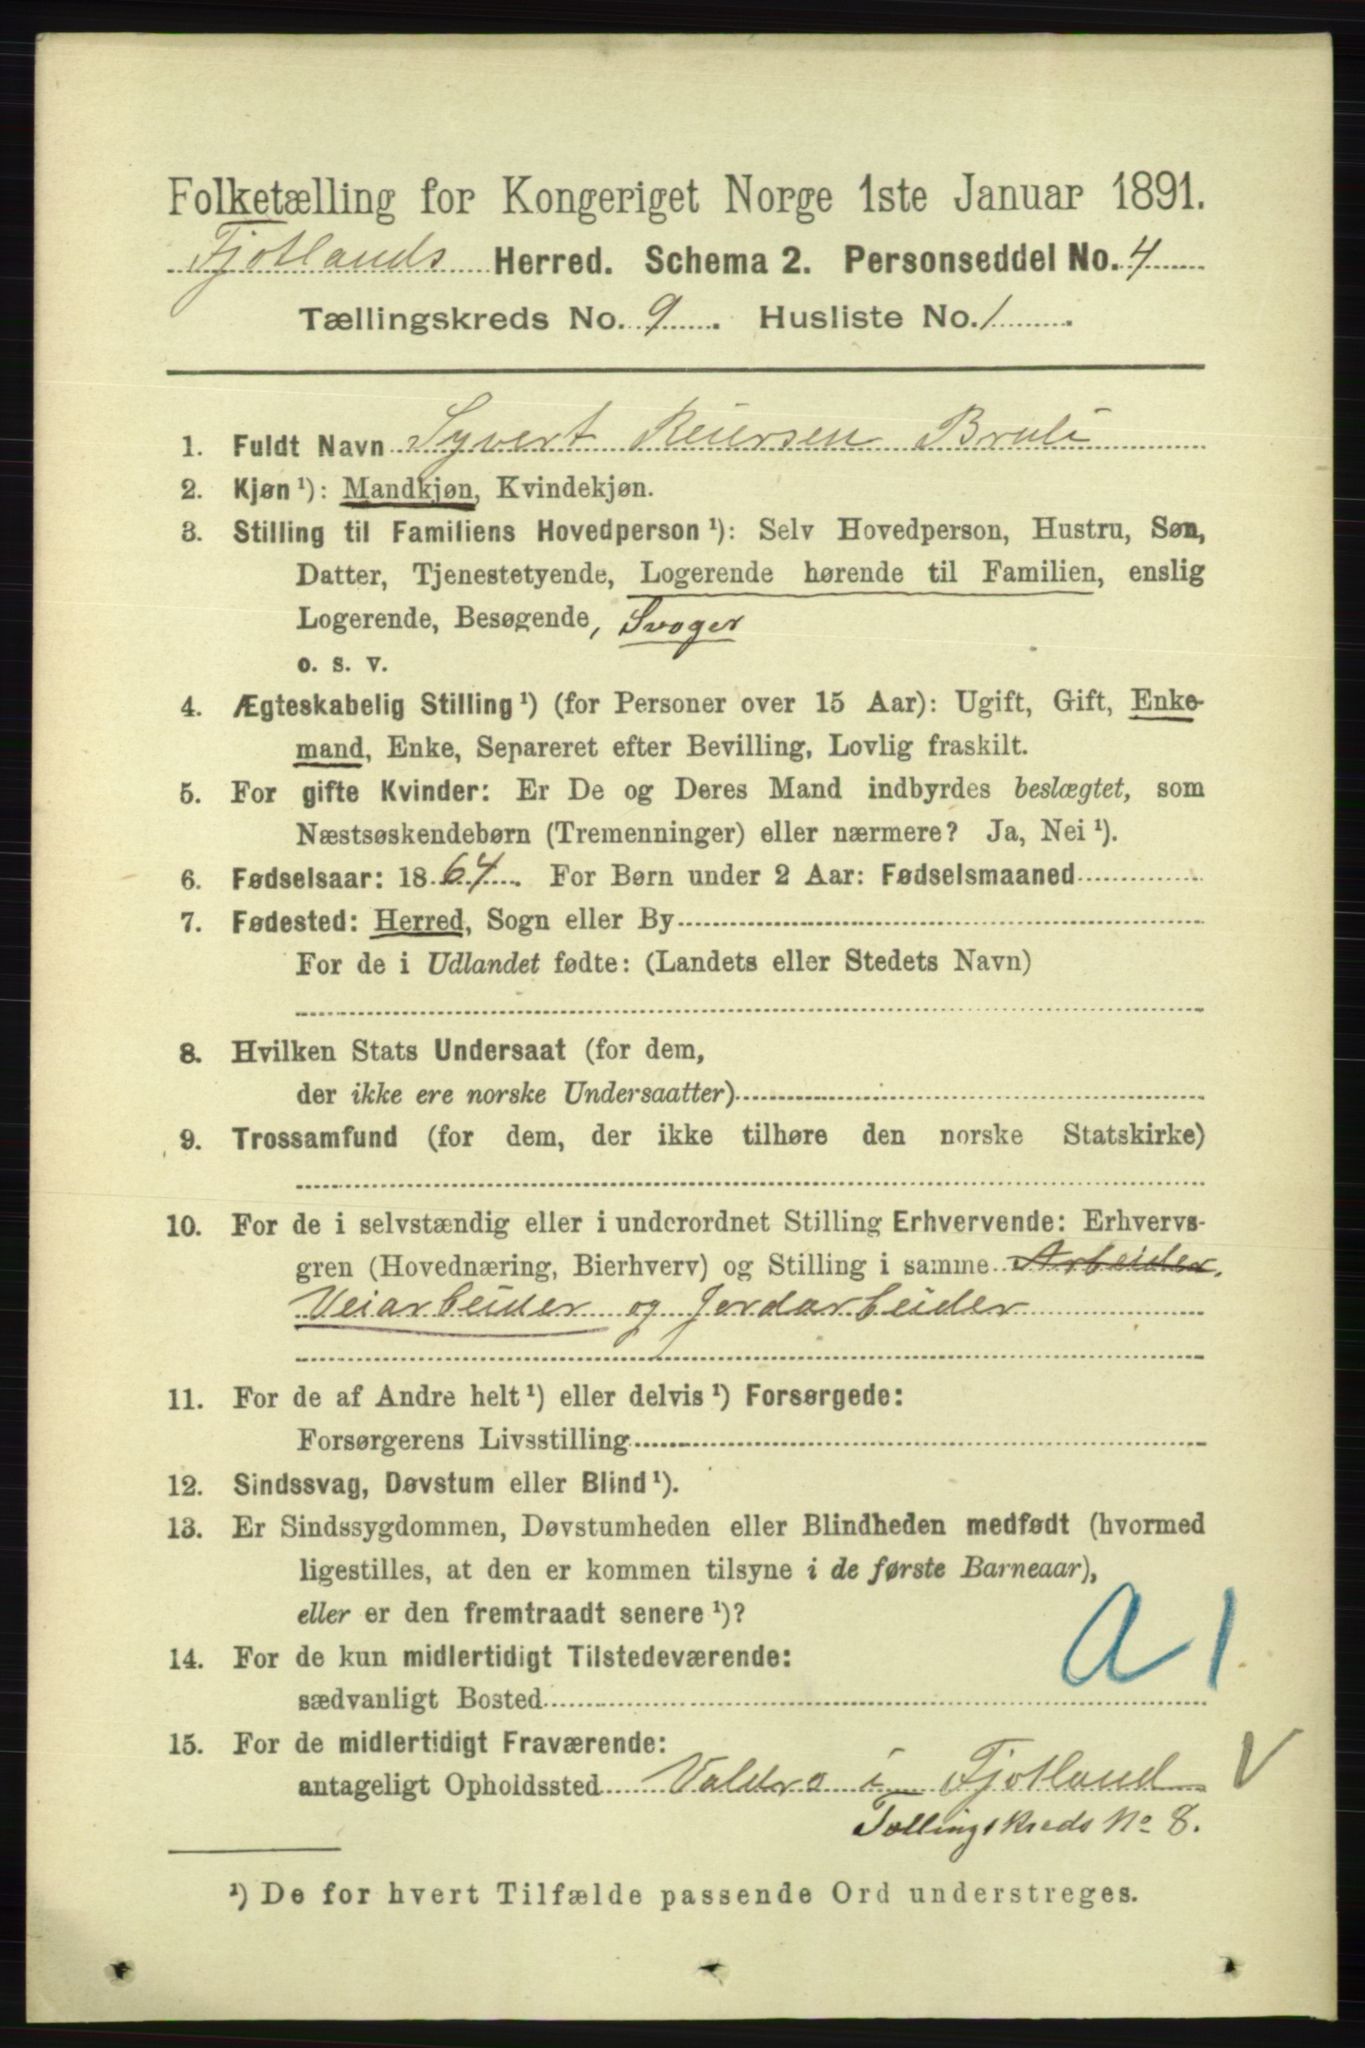 Folketælling for Kongeriget Norge 1ste Januar 1891.
Fjotlands Herred. Schema 2. Personseddel No. 4
Tællingskreds No. 9. Husliste No. 1.
1. Fuldt Navn Syvert Reiersen Bruli
2. Kjøn ¹): Mandkjøn, Kvindekjøn.
3. Stilling til Familiens Hovedperson ¹): Selv Hovedperson, Hustru, Søn,
Datter, Tjenestetyende, Logerende hørende til Familien, enslig
Logerende, Besøgende, Svoger
o. s. v.
4. Ægteskabelig Stilling ¹) (for Personer over 15 Aar): Ugift, Gift, Enke-
mand, Enke, Separeret efter Bevilling, Lovlig fraskilt.
5. For gifte Kvinder: Er De og Deres Mand indbyrdes beslægtet, som
Næstsøskendebørn (Tremenninger) eller nærmere? Ja, Nei ¹).
6. Fødselsaar: 1864. For Børn under 2 Aar: Fødselsmaaned
7. Fødested: Herred, Sogn eller By
For de i Udlandet fødte: (Landets eller Stedets Navn)
8. Hvilken Stats Undersaat (for dem,
der ikke ere norske Undersaatter)
9. Trossamfund (for dem, der ikke tilhøre den norske Statskirke)
10. For de i selvstændig eller i underordnet Stilling Erhvervende: Erhvervs-
gren (Hovednæring, Bierhverv) og Stilling i samme Arbeider.
Veiarbeider og Jordarbeider
11. For de af Andre helt ¹) eller delvis ¹) Forsørgede:
Forsørgerens Livsstilling
12. Sindssvag, Døvstum eller Blind ¹).
13. Er Sindssygdommen, Døvstumheden eller Blindheden medfødt (hvormed
ligestilles, at den er kommen tilsyne i de første Barneaar),
eller er den fremtraadt senere ¹)?
a 1
14. For de kun midlertidigt Tilstedeværende:
sædvanligt Bosted
15. For de midlertidigt Fraværende:
antageligt Opholdssted Valdra i Fjotland V
Tællingskreds No 8.
¹) De for hvert Tilfælde passende Ord understreges.